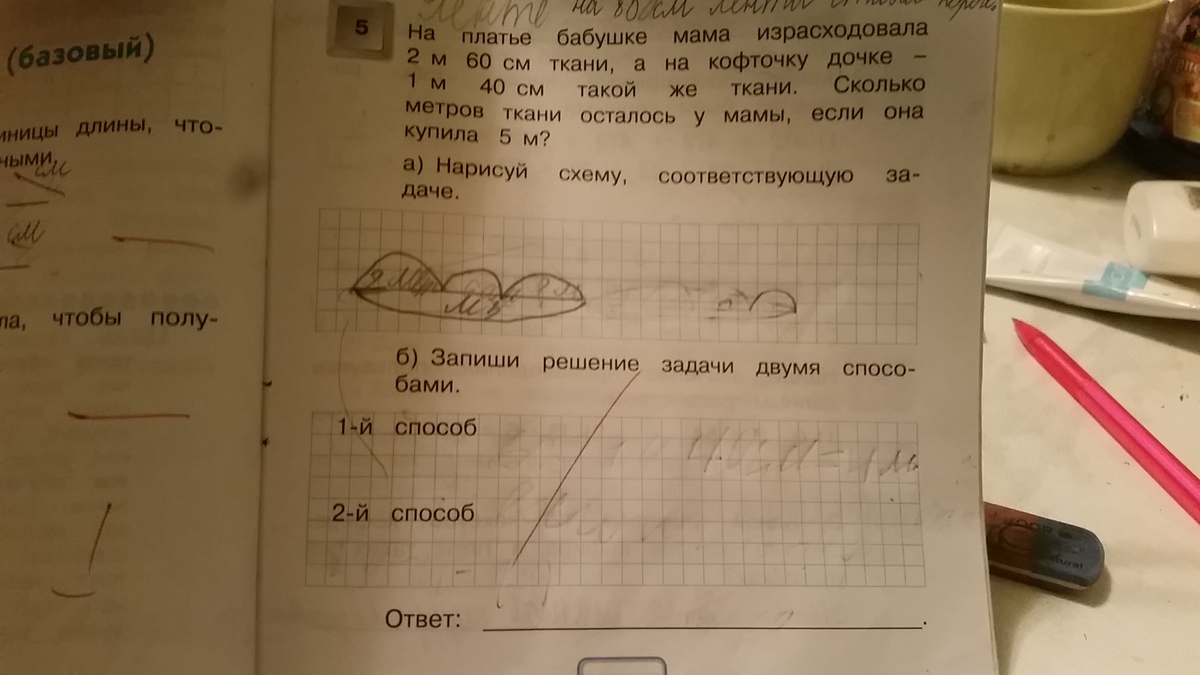 (базовый)
иницы длины, что-
ными,
см
см
ла, чтобы полу-
на 80 см ленты
5
На платье бабушке мама израсходовала
2 м 60 см ткани, а на кофточку дочке –
1 м 40 см такой же ткани. Сколько
метров ткани осталось у мамы, если она
купила 5 м?
а) Нарисуй схему, соответствующую за-
даче.
б) Запиши решение задачи двумя спосо-
бами.
1-й способ
2-й способ
Ответ: